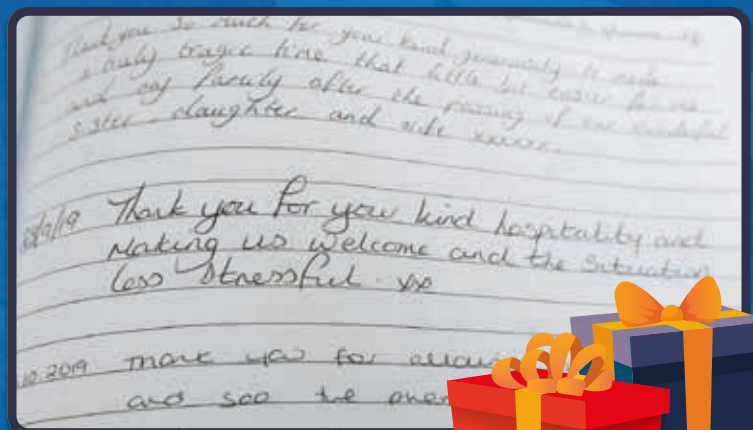 Thank you so much for your kind generosity it made
a truly tragic time that little bit easier for me
and my family after the passing of our wonderful
sister, daughter and wife xxxxx
Thank you for your kind hospitality and
Making us welcome and the situation
less stressful xx
10 2019 Thank you for
and see the